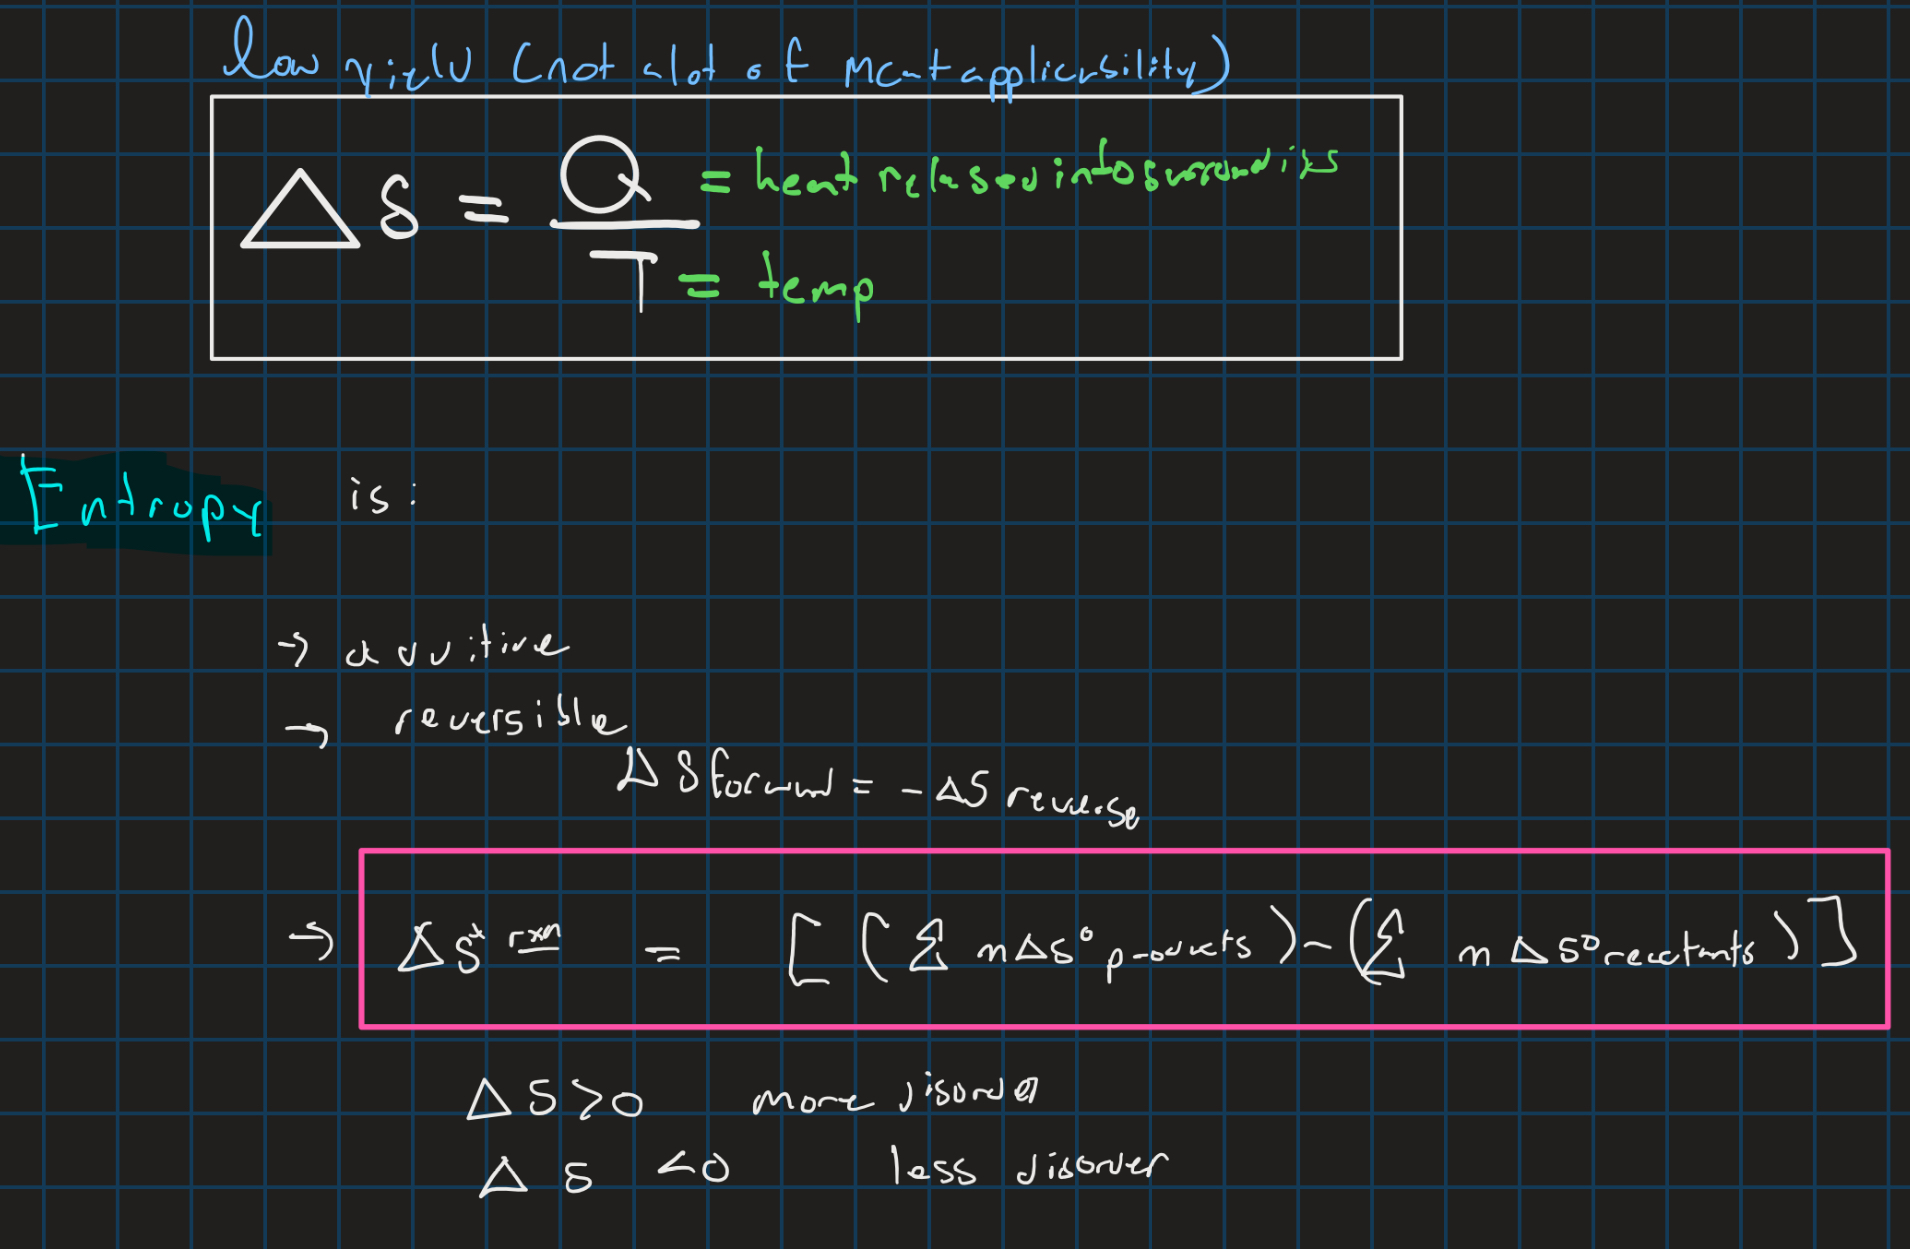 low yield (not alot of mcat applicability)
ΔS = Q = heat relased into surroundings
T = temp
Entropy is:
→ additive
→ reversible
ΔS forward = -ΔS reverse
→ ΔS° rxn = [(Σ nΔS° products) - (Σ nΔS° reactants)]
ΔS>0 more disorder
ΔS <0 less disorder